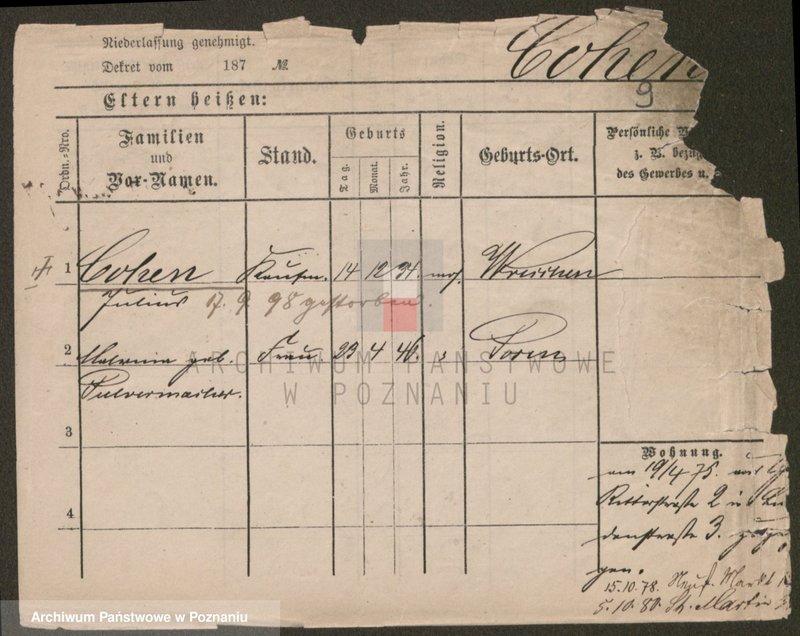 Niederlassung genehmigt.
Dekret vom 187 №
Cohen
9
Eltern heißen:
Ordn.-Nro.
Familien
und
Vor-Namen.
Stand.
Geburts
Tag.
Monat.
Jahr.
Religion.
Geburts-Ort.
Persönliche
z. B. bezüg
des Gewerbes u.
1 Cohen Kaufm. 14 12 34 mos. Wreschen
Julius 17. 9 98 gestorben.
2 geb. Frau 23 4 46. Posen
Pulvermacher.
3
4
Wohnung.
am 19/4 75.
Ritterstraße 2
denstraße 3.
gen.
15.10.78. Markt
5.10.80. St. Martin
ARCHIWUM PAŃSTWOWE
W POZNANIU
Archiwum Państwowe w Poznaniu